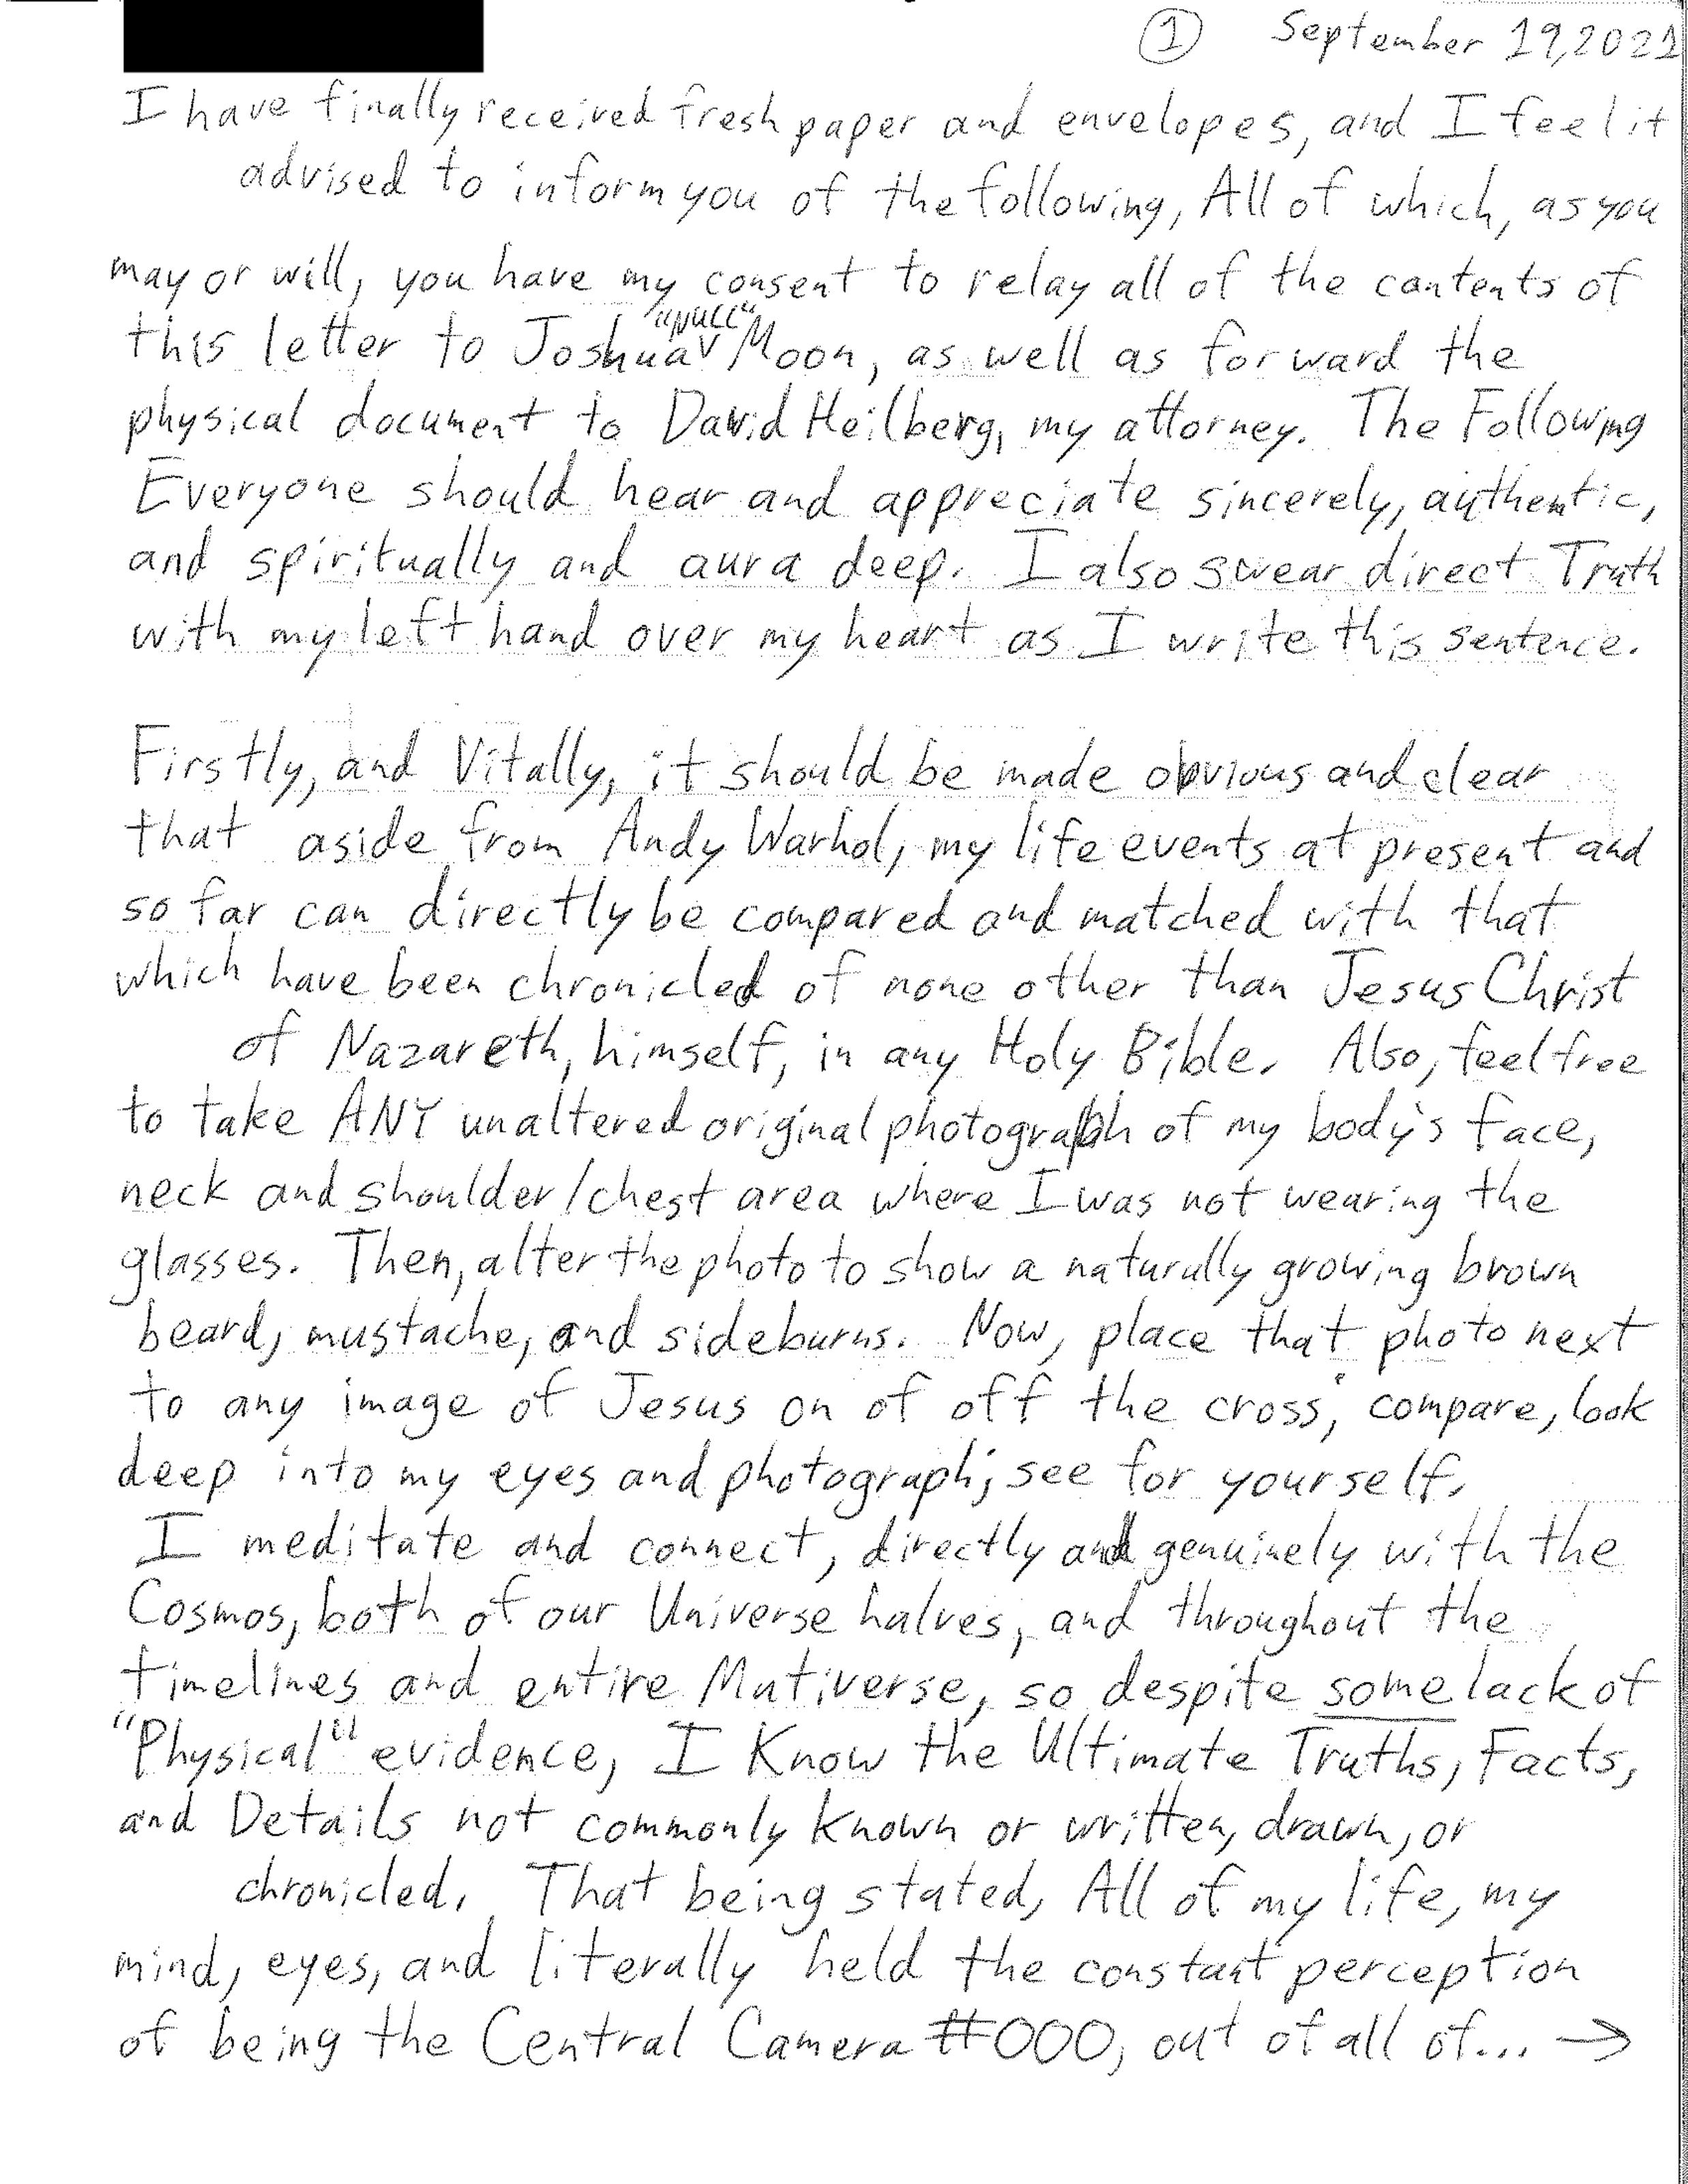 ① September 19, 2021
I have finally received fresh paper and envelopes, and I feel it
advised to inform you of the following, All of which, as you
may or will, you have my consent to relay all of the contents of
this letter to Joshua "NULL" Moon, as well as forward the
physical document to David Heilberg, my attorney. The Following
Everyone should hear and appreciate sincerely, authentic,
and spiritually and aura deep. I also swear direct Truth
with my left hand over my heart as I write this sentence.
Firstly, and Vitally, it should be made obvious and clear
that aside from Andy Warhol, my life events at present and
so far can directly be compared and matched with that
which have been chronicled of none other than Jesus Christ
of Nazareth, himself, in any Holy Bible. Also, feel free
to take ANY unaltered original photograph of my body's face,
neck and shoulder/chest area where I was not wearing the
glasses. Then, alter the photo to show a naturally growing brown
beard, mustache, and sideburns. Now, place that photo next
to any image of Jesus on of off the cross; compare, look
deep into my eyes and photograph; see for yourself.
I meditate and connect, directly and genuinely with the
Cosmos, both of our Universe halves, and throughout the
timelines and entire Mutiverse, so despite some lack of
"Physical" evidence, I Know the Ultimate Truths, Facts,
and Details not commonly known or written, drawn, or
chronicled. That being stated, All of my life, my
mind, eyes, and literally held the constant perception
of being the Central Camera #000, out of all of... →